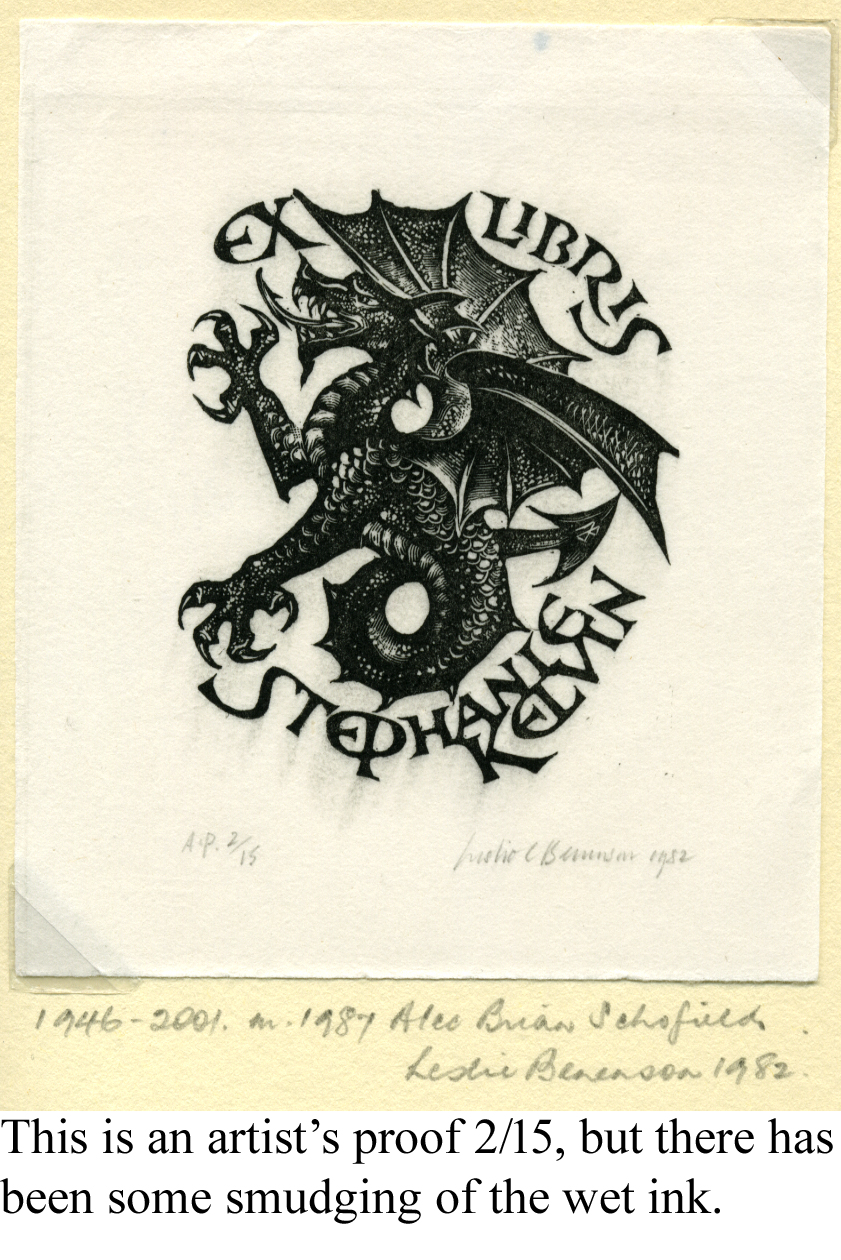 EX LIBRIS
STEPHANIE
KELVIN
A.P. 2/15
Leslie C Benenson 1982
1946-2001. m. 1987 Alec Brian Schofield.
Leslie Benenson 1982.
This is an artist’s proof 2/15, but there has
been some smudging of the wet ink.